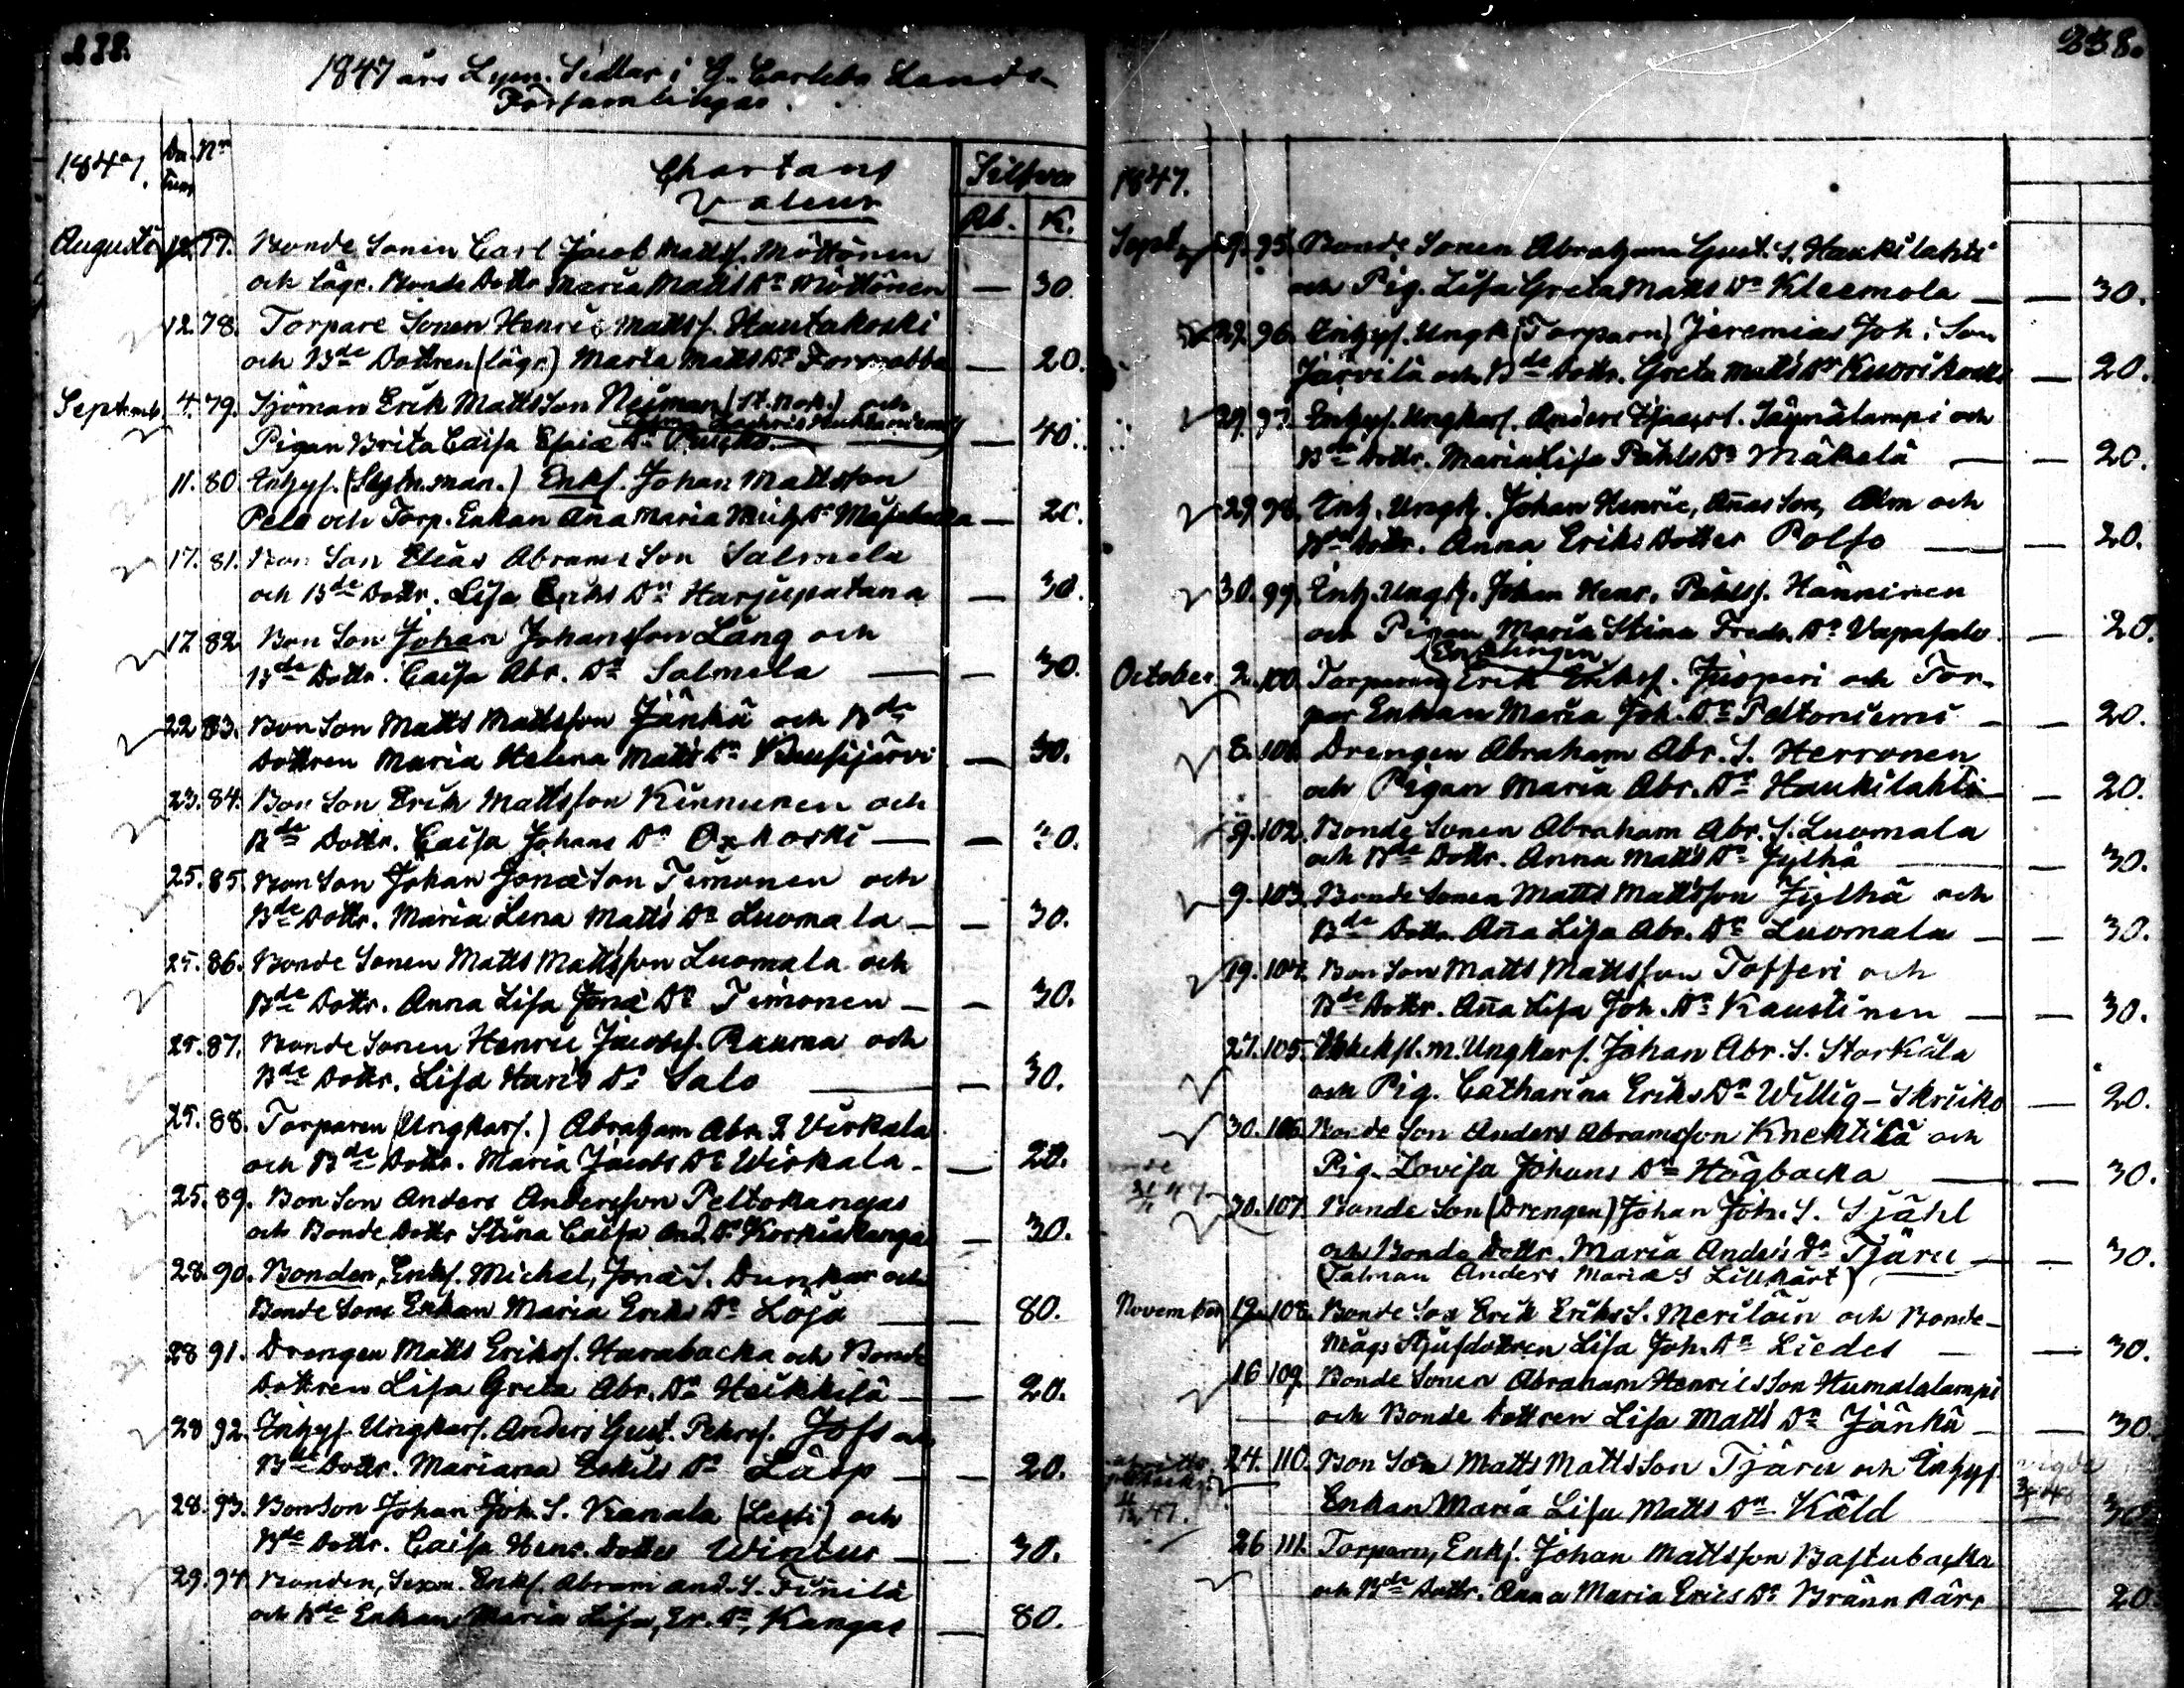 238.
1847 års Lysn. Sedlar i G. Carleby Lands-
Församlingar.
1847. Da- N:
tum
Chartans Silfver
Valeur Rb. K.
Augusti 12. 77. Bonde Sonen Carl Jacob Mattss. Möttönen
och lägr. Bonde Dottr Maria Matts Dr Möttönen — 30.
12. 78. Torpare Sonen Henric Mattss. Hautakoski
och Bde Dottren (lägr.) Maria Matts Dr Forsnabba — 20.
Septemb. 4. 79. Sjöman Erik Mattsson Neiman (st. Nok.) och
Pigan Brita Caisa Esaiæ Dr — 40.
11. 80. Inhys. Enkl. Johan Mattsson
Pelo och Torp. Enkan Aña Maria Mich Dr — 20.
17. 81. Bon Son Elias Abrams Son Salmela
och Bde Dottr. Lisa Eriks Dr Harjupatana — 30.
17 82 Bon Son Johan Johansson Lång och
Bde Dottr. Caisa Abr. Dr Salmela — 30.
22 83. Bon Son Matts Mattsson Jänkä och Bde
Dottren Maria Helena Matts Dr Kausijärvi — 30.
23. 84. Bon Son Erik Mattsson Kinnunen och
Bde Dottr. Caisa Johans Dr Oxkoski — 30.
25. 85. Bon Son Johan Jonæ Son Timonen och
Bde Dottr. Maria Lena Matts Dr Luomala — 30.
25. 86. Bonde Sonen Matts Mattsson Luomala och
Bde Dottr. Anna Lisa Jonæ Dr Timonen — 30.
25. 87. Bonde Sonen Henric Jacobss. Rauma och
Bde Dottr. Lisa Hans Dr Salo — 30.
25. 88. Torparen (Ungkarl.) Abraham Abr. S. Virkala
och Bde Dottr. Maria Jacobs Dr Wirkala — 20.
25. 89. Bon Son Anders Andersson Peltokangas
och Bonde Dottr Stina Caisa And. Dr Korkiakangas — 30.
28. 90. Bonden, Enkl. Michel, Jonæ S. Dunkar och
Bonde Sons Enkan Maria Eriks Dr Löja — 80.
28 91. Drengen Matts Erikss. Harabacka och Bonde
Dottren Lisa Greta Abr. Dr Heikkilä — 20.
28 92. Inhys. Ungkarl. Anders Gust. Pehrss. Jofs och
Bde Dottr. Mariana Eskils Dr Läsp — 20.
28. 93. Bonson Johan Joh. S. Kanala (Lesti) och
Bde Dottr. Caisa Henr. Dotter Winter — 30.
29. 94 Bonden, Sexm. Enkl. Abram And. S. Finnilä
och Bde Enkan Maria Lisa, Er. Dr, Kangas — 80.
238.
1847.
Sept. 29. 95. Bonde Sonen Abraham Gust. S. Haukilahti
och Pig. Lisa Greta Matts Dr Kleemola — 30.
29. 96. Inhys. Ungk. (Torparn) Jeremias Joh. Son
Järvilä och Bde Dottr. Greta Matts Dr Kuorikoski — 20.
29. 97. Inhys. Ungkarl. Anders och
Bde Dottr. Maria Lisa Påhls Dr Mäkelä — 20.
29. 98. Inh. Ungk. Johan Henric, Añas Son, Alm och
Bde Dottr. Anna Eriks Dotter Polso — 20.
30. 99. Inh. Ungk. Johan Henr. Påhlss. Hänninen
och Pigan Maria Stina Fredr. Dr Vapasalo — 20.
(Enklingen)
October. 2. 100. Torparen Erik Erikss. Jusperi och Tor-
par Enkan Maria Joh. Dr Peltoniemi — 20.
8. 101. Drengen Abraham Abr. S. Herronen
och Pigan Maria Abr. Dr Haukilahti — 20.
9. 102. Bonde Sonen Abraham Abr. S. Luomala
och Bde Dottr. Anna Matts Dr Jylhä — 30.
9. 103. Bonde Sonen Matts Mattsson Jylhä och
Bde Dottr. Aña Lisa Abr. Dr Luomala — 30.
19. 104. Bon Son Matts Mattsson Tofferi och
Bde Dottr. Aña Lisa Joh. Dr Kaustinen — 30.
27. 105. Ungkarl. Johan Abr. S. Storkåla
och Pig. Catharina Eriks Dr Willig-Skriiko — 20.
30. 106. Bonde Son Anders Abramsson Knektilä och
Pig. Lovisa Johans Dr Högbacka — 30.
30. 107. Bonde Son (Drengen) Johan Joh. S. Sjåhl
och Bonde Dottr. Maria Anders Dr Tjäru — 30.
(Talman Anders Mariæ S Lillkårt)
November 12. 108. Bonde Son Erik Eriks S. Meriläin och Bonde-
Mågs Styfdottren Lisa Joh. Dr Liedes — 30.
16 109. Bonde Sonen Abraham Henrics Son Humalalampi
och Bonde Dottren Lisa Matts Dr Jänkä — 30.
24. 110. Bon Son Matts Mattsson Tjäru och Inhys.
Enkan Maria Lisa Matts Dr Kæld — 30
26 111. Torparn, Enkl. Johan Mattsson Bastubacka
och Bde Dottr. Anna Maria Erics Dr Brännkärr — 20.